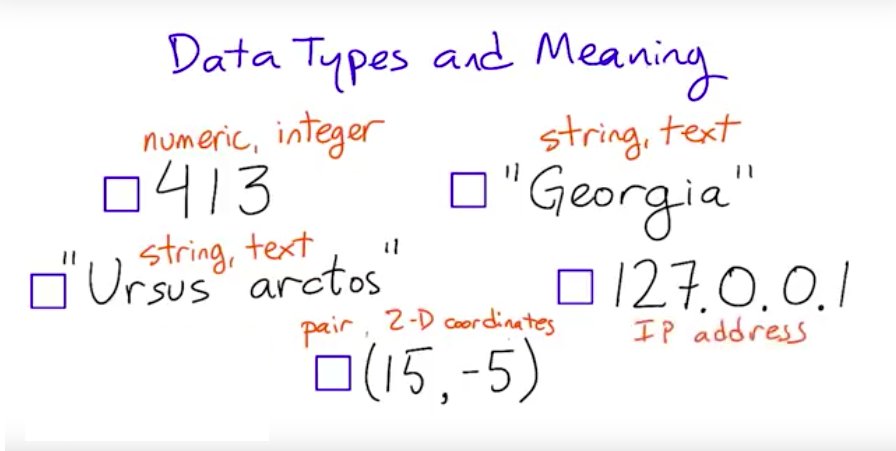 Data Types and Meaning
numeric, integer
413
string, text
"Georgia"
string, text
"Ursus arctos"
127.0.0.1
IP address
pair, 2-D coordinates
(15,-5)